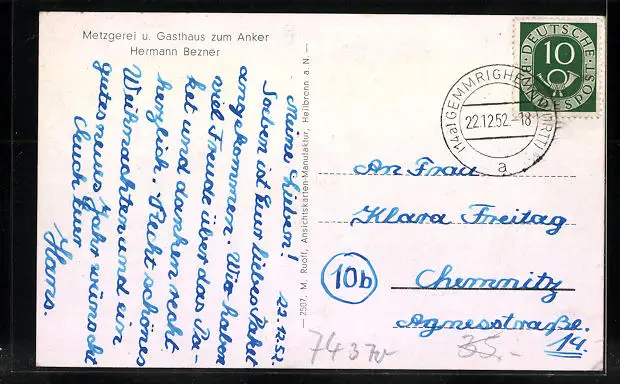 Metzgerei u. Gasthaus zum Anker
Hermann Bezner
Meine Lieben! 22.12.52.
Soeben ist Euer liebes Paket
angekommen. Wir haben
viel Freude über das Pa-
ket und danken recht
herzlich. Recht schönes
Weihnachten und ein
gutes neues Jahr wünscht
Euch Euer
Hans.
— 2507, M. Ruoff, Ansichtskarten-Manufaktur, Heilbronn a. N. —
DEUTSCHE BUNDESPOST
10
(14a) GEMMRIGHEIM (WÜRTT)
22.12.52.-18
a
An Frau
Klara Freitag
10b
Chemnitz
Agnesstraße.
14.
35.-